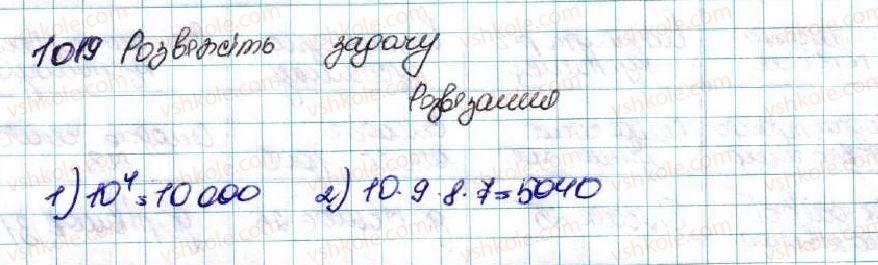 1019 Розвяжіть задачу
Розвязання
1) 10⁴ = 10 000 2) 10 · 9 · 8 · 7 = 5040